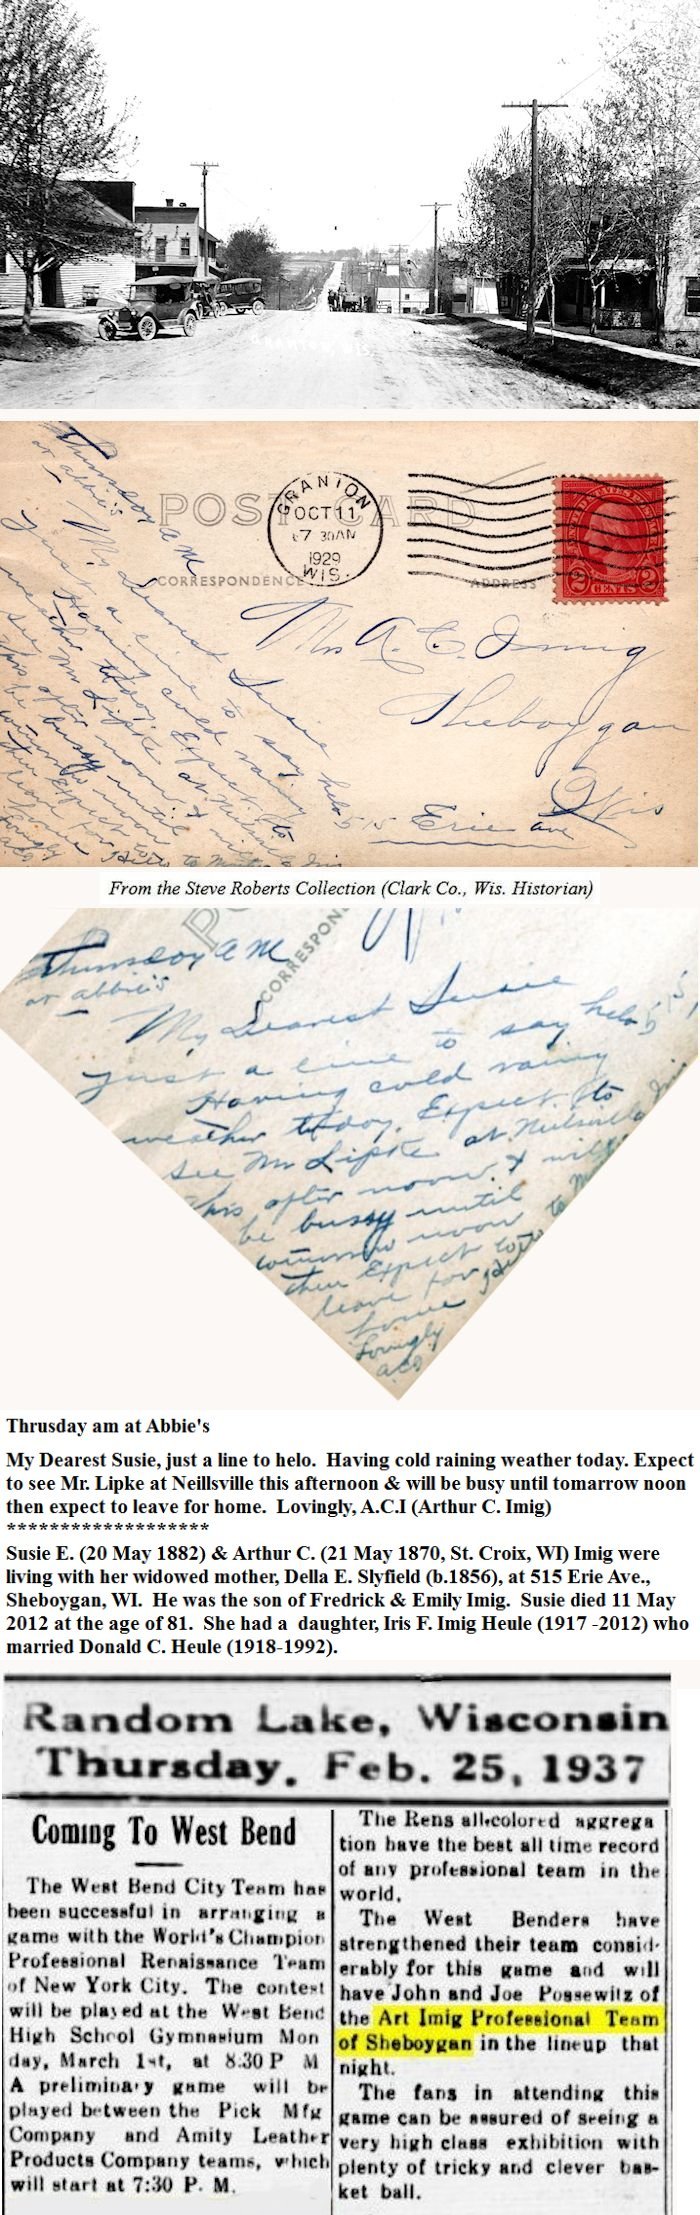 GRANTON, WIS
POST CARD
GRANTON
OCT 11
7 30 AM
1929
WIS.
CORRESPONDENCE
ADDRESS
UNITED STATES POSTAGE
2 CENTS 2
Thursday AM
at abbie's
My Dearest Susie
Just a line to say helo
Having cold rainy
weather today. Expect to
see Mr Lipke at Neilsville
this after noon & will
be bussy until
tomorrow noon
then Expect to
leave for
home
Lovingly
ACI
Mrs A. C. Imig
Sheboygan
Wis
515 Erie ave
From the Steve Roberts Collection (Clark Co., Wis. Historian)
CORRESPON
Thursday AM
at abbie's
My Dearest Susie
Just a line to say helo
Having cold rainy
weather today. Expect to
see Mr Lipke at Neilsville
this after noon & will
be bussy until
tomorrow noon
then Expect to
leave for
home
Lovingly
ACI
Thrusday am at Abbie's
My Dearest Susie, just a line to helo. Having cold raining weather today. Expect
to see Mr. Lipke at Neillsville this afternoon & will be busy until tomarrow noon
then expect to leave for home. Lovingly, A.C.I (Arthur C. Imig)
*******************
Susie E. (20 May 1882) & Arthur C. (21 May 1870, St. Croix, WI) Imig were
living with her widowed mother, Della E. Slyfield (b.1856), at 515 Erie Ave.,
Sheboygan, WI. He was the son of Fredrick & Emily Imig. Susie died 11 May
2012 at the age of 81. She had a daughter, Iris F. Imig Heule (1917 -2012) who
married Donald C. Heule (1918-1992).
Random Lake, Wisconsin
Thursday, Feb. 25, 1937
Coming To West Bend
The West Bend City Team has
been successful in arranging a
game with the World's Champion
Professional Renaissance Team
of New York City. The contest
will be played at the West Bend
High School Gymnasium Mon
day, March 1st, at 8:30 P M
A preliminary game will be
played between the Pick Mfg
Company and Amity Leather
Products Company teams, which
will start at 7:30 P. M.
The Rens all-colored aggrega
tion have the best all time record
of any professional team in the
world.
The West Benders have
strengthened their team consid-
erably for this game and will
have John and Joe Possewitz of
the Art Imig Professional Team
of Sheboygan in the lineup that
night.
The fans in attending this
game can be assured of seeing a
very high class exhibition with
plenty of tricky and clever bas-
ket ball.